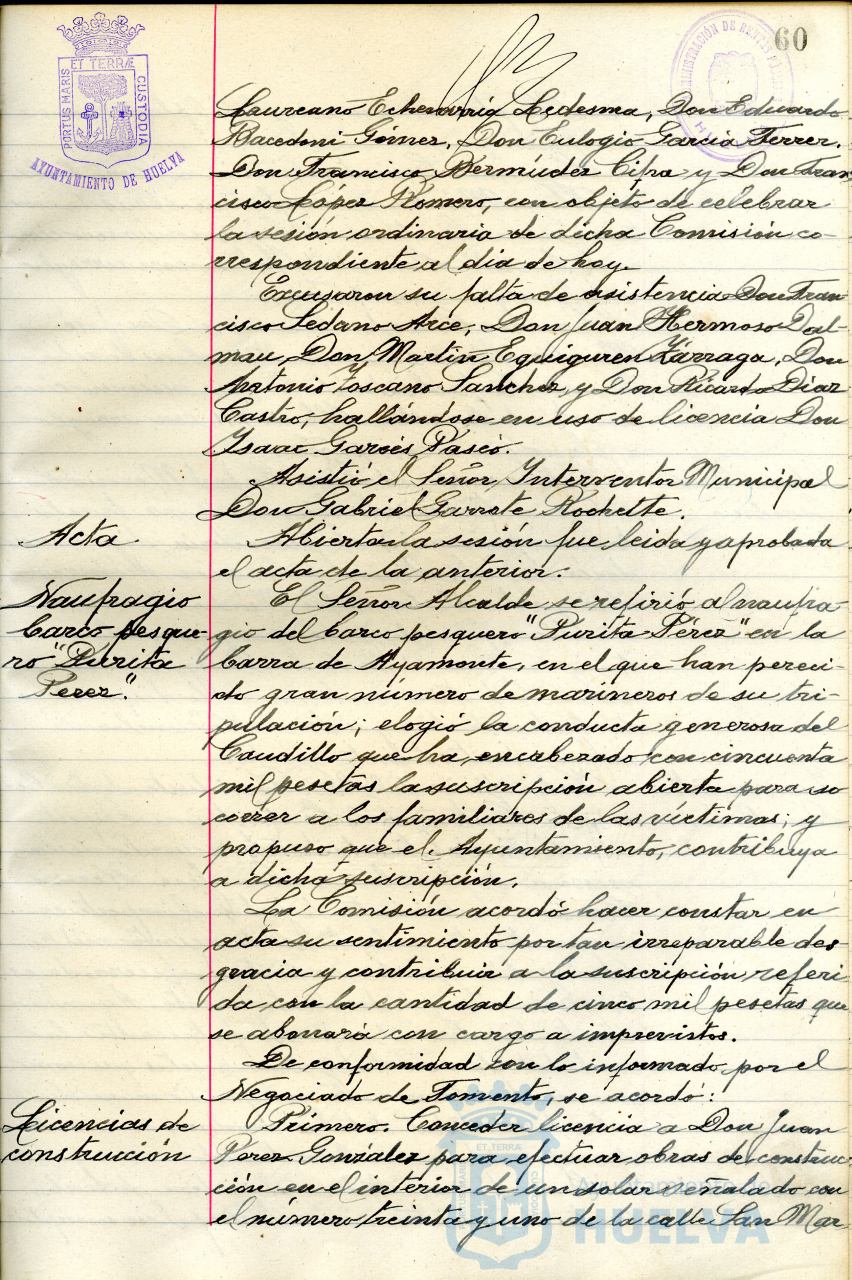 60
PORTUS MARIS ET TERRÆ CUSTODIA
AYUNTAMIENTO DE HUELVA
Laureano Echevarría Ledesma, Don Eduardo
Bacedoni Gómez, Don Eulogio García Ferrer,
Don Francisco Bermúdez Cifra y Don Fran
cisco López Romero, con objeto de celebrar
la sesión ordinaria de dicha Comisión co-
rrespondiente al día de hoy.
Excusaron su falta de asistencia Don Fran
cisco Sedano Arce, Don Juan Hermoso Dal-
mau, Don Martín Eguiguren Zárraga, Don
Antonio Toscano Sanchez y Don Ricardo Diaz
Castro, hallándose en uso de licencia Don
Isaac Garcés Pascó.
Asistió el Señor Interventor Municipal
Don Gabriel Garrote Rochette.
Acta
Abierta la sesión fue leida y aprobada
el acta de la anterior.
Naufragio
barco pesque-
ro "Purita
Perez".
El Señor Alcalde se refirió al naufra
gio del barco pesquero "Purita Pérez" en la
barra de Ayamonte, en el que han pereci
do gran número de marineros de su tri-
pulación; elogió la conducta generosa del
Caudillo que ha encabezado con cincuenta
mil pesetas la suscripción abierta para so
correr a los familiares de las víctimas; y
propuso que el Ayuntamiento, contribuya
a dicha suscripción.
La Comisión acordó hacer constar en
acta su sentimiento por tan irreparable des
gracia y contribuir a la suscripción referi
da con la cantidad de cinco mil pesetas que
se abonará con cargo a imprevistos.
De conformidad con lo informado por el
Negociado de Fomento, se acordó:
Licencias de
construcción
Primero. Conceder licencia a Don Juan
Perez González para efectuar obras de construc
ción en el interior de un solar señalado con
el número treinta y uno de la calle San Mar
ET TERRÆ
Ayuntamiento de
HUELVA